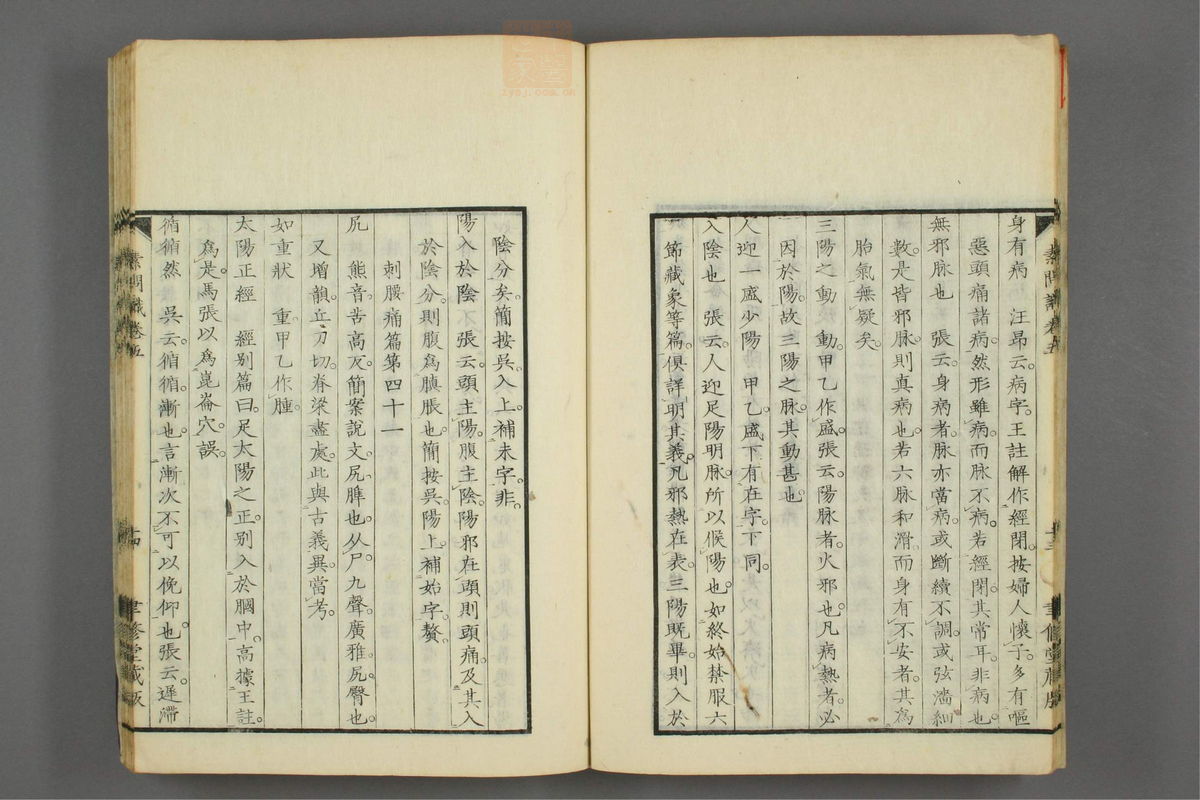 身有病　汪昂云。病字。王註解作經閉。按婦人懷子。多有嘔
惡頭痛諸病。然形雖病而脉不病。若經閉。其常耳。非病也。
無邪脉也　張云。身病者。脉亦當病。或斷續不調。或弦濇細
數。是皆邪脉。則真病也。若六脉和滑。而身有不安者。其爲
胎氣無疑矣。
三陽之動　動。甲乙作盛。張云。陽脉者。火邪也。凡病熱者。必
因於陽。故三陽之脉。其動甚也。
人迎一盛少陽　甲乙。盛下有在字。下同。
入陰也　張云。人迎足陽明脉。所以候陽也。如終始禁服六
節藏象等篇。俱詳明其義。凡邪熱在表。三陽既畢。則入於
素問識卷五
十三
聿修堂藏版
陰分矣。簡按吳入上補未字非。
陽入於陰　張云。頭主陽。腹主陰。陽邪在頭。則頭痛。及其入
於陰分。則腹爲䐜脹也。簡按吳。陽上補始字。贅。
刺腰痛篇第四十一
尻　熊音。苦高反。簡案說文。尻。脾也。从尸九聲。廣雅。尻。臀也。
又增韻。丘刀切。脊梁盡處。此與古義異。當考。
如重狀　重。甲乙作腫。
太陽正經　經別篇曰。足太陽之正。別入於膕中。高據王註。
爲是。馬張以爲崑崙穴。誤。
循循然　吳云。循循。漸也。言漸次不可以俛仰也。張云。遲滯
素問識卷五
十四
聿修堂藏版